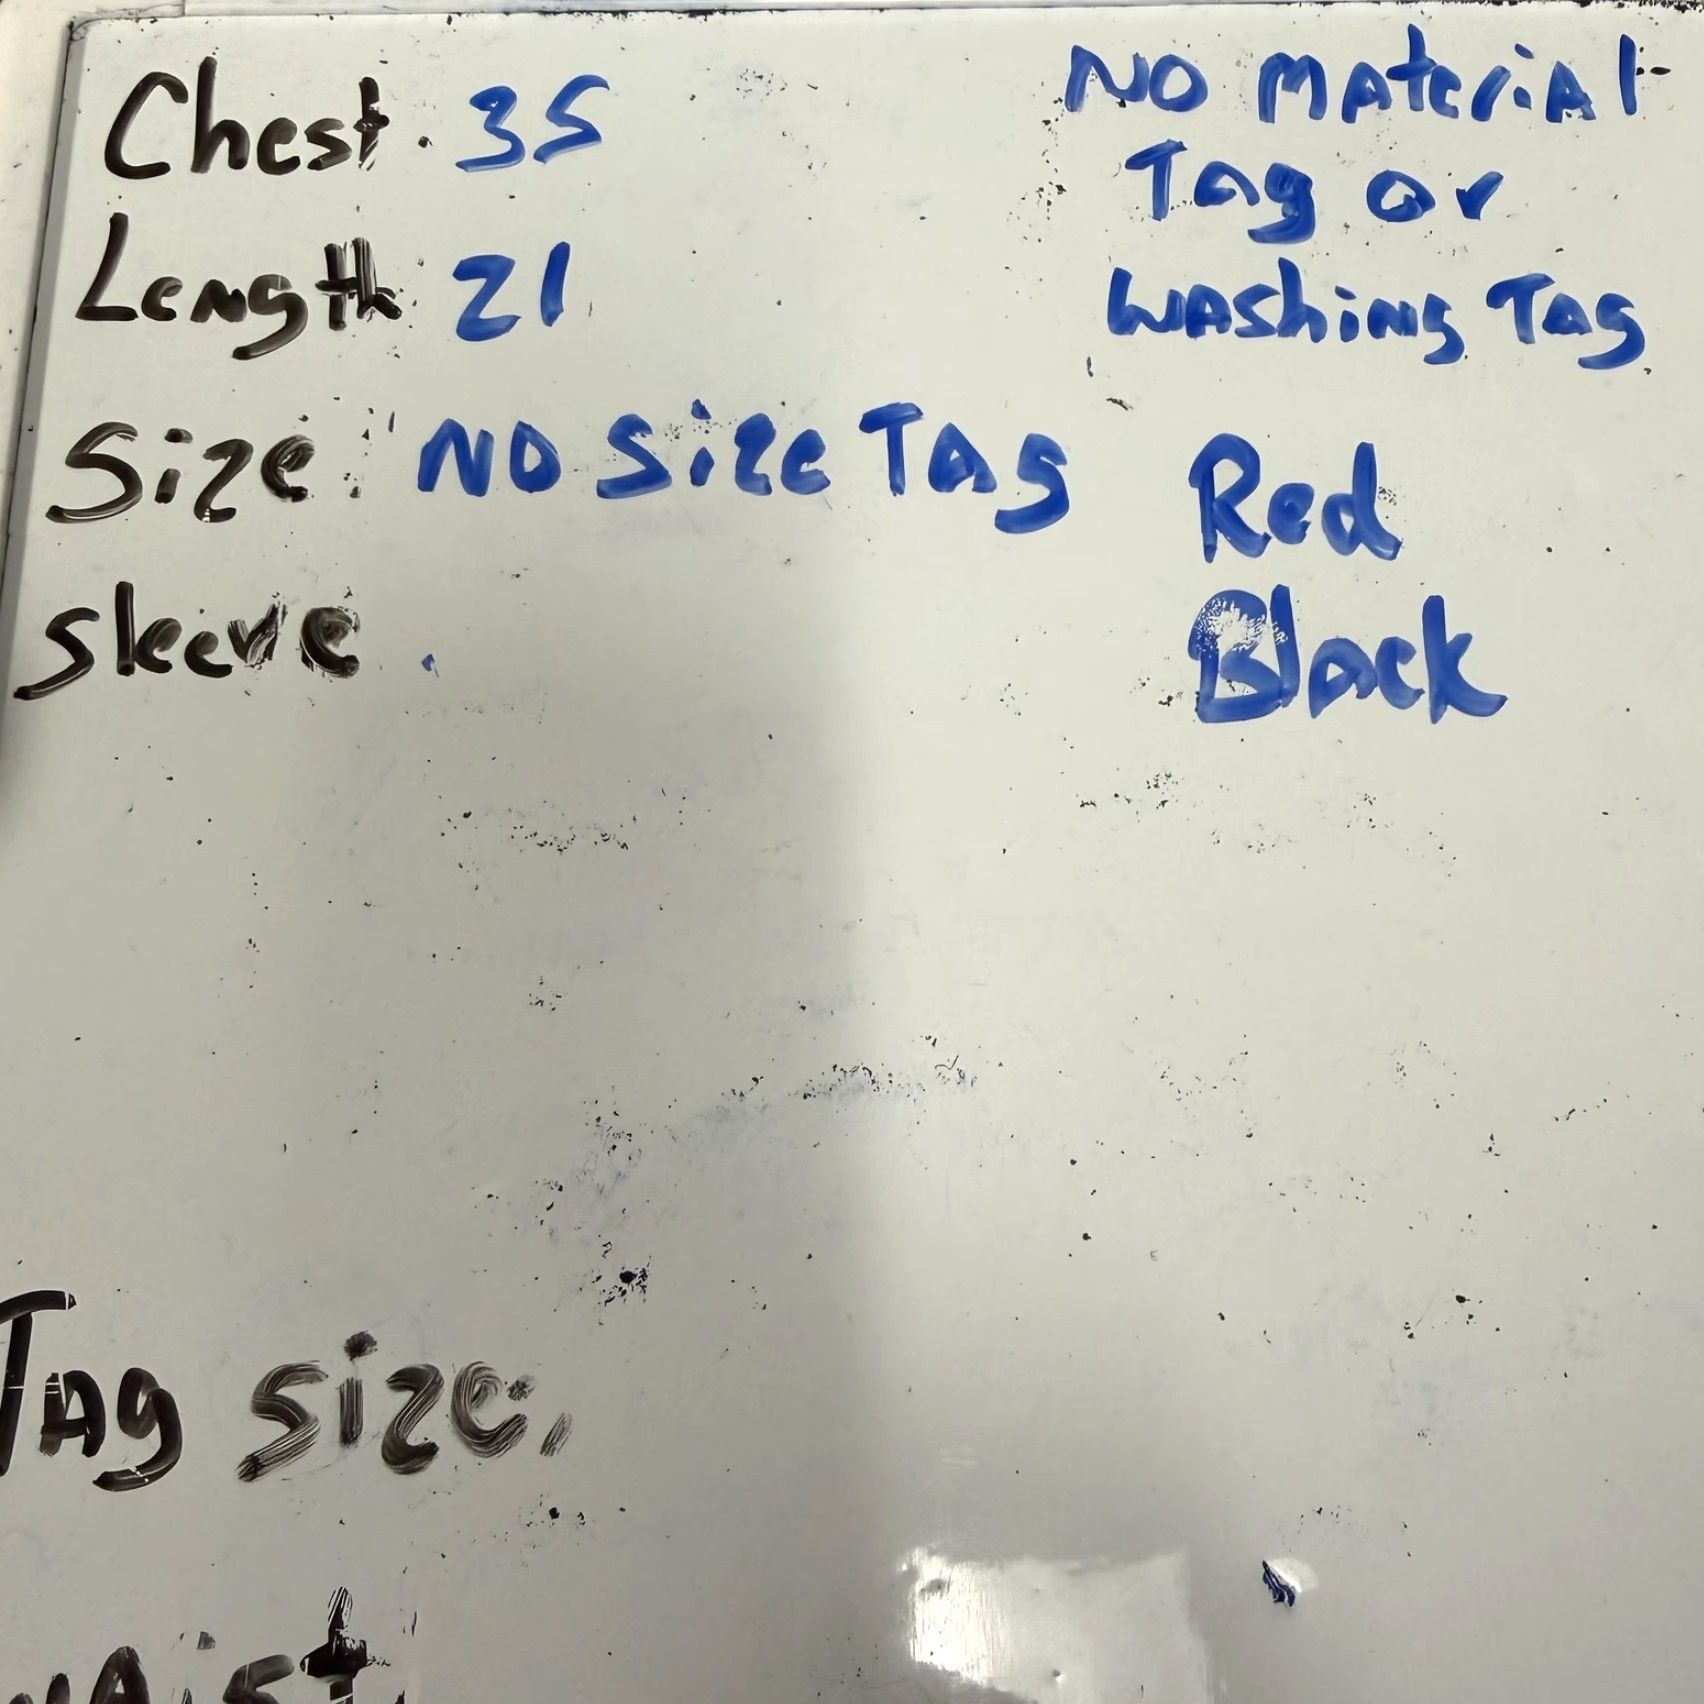 Chest. 35
Length: 21
Size: NO Size TAg
Sleeve
NO MAteriAl
Tag or
WAShing TAg
Red
Black
TAg Size.
WAist